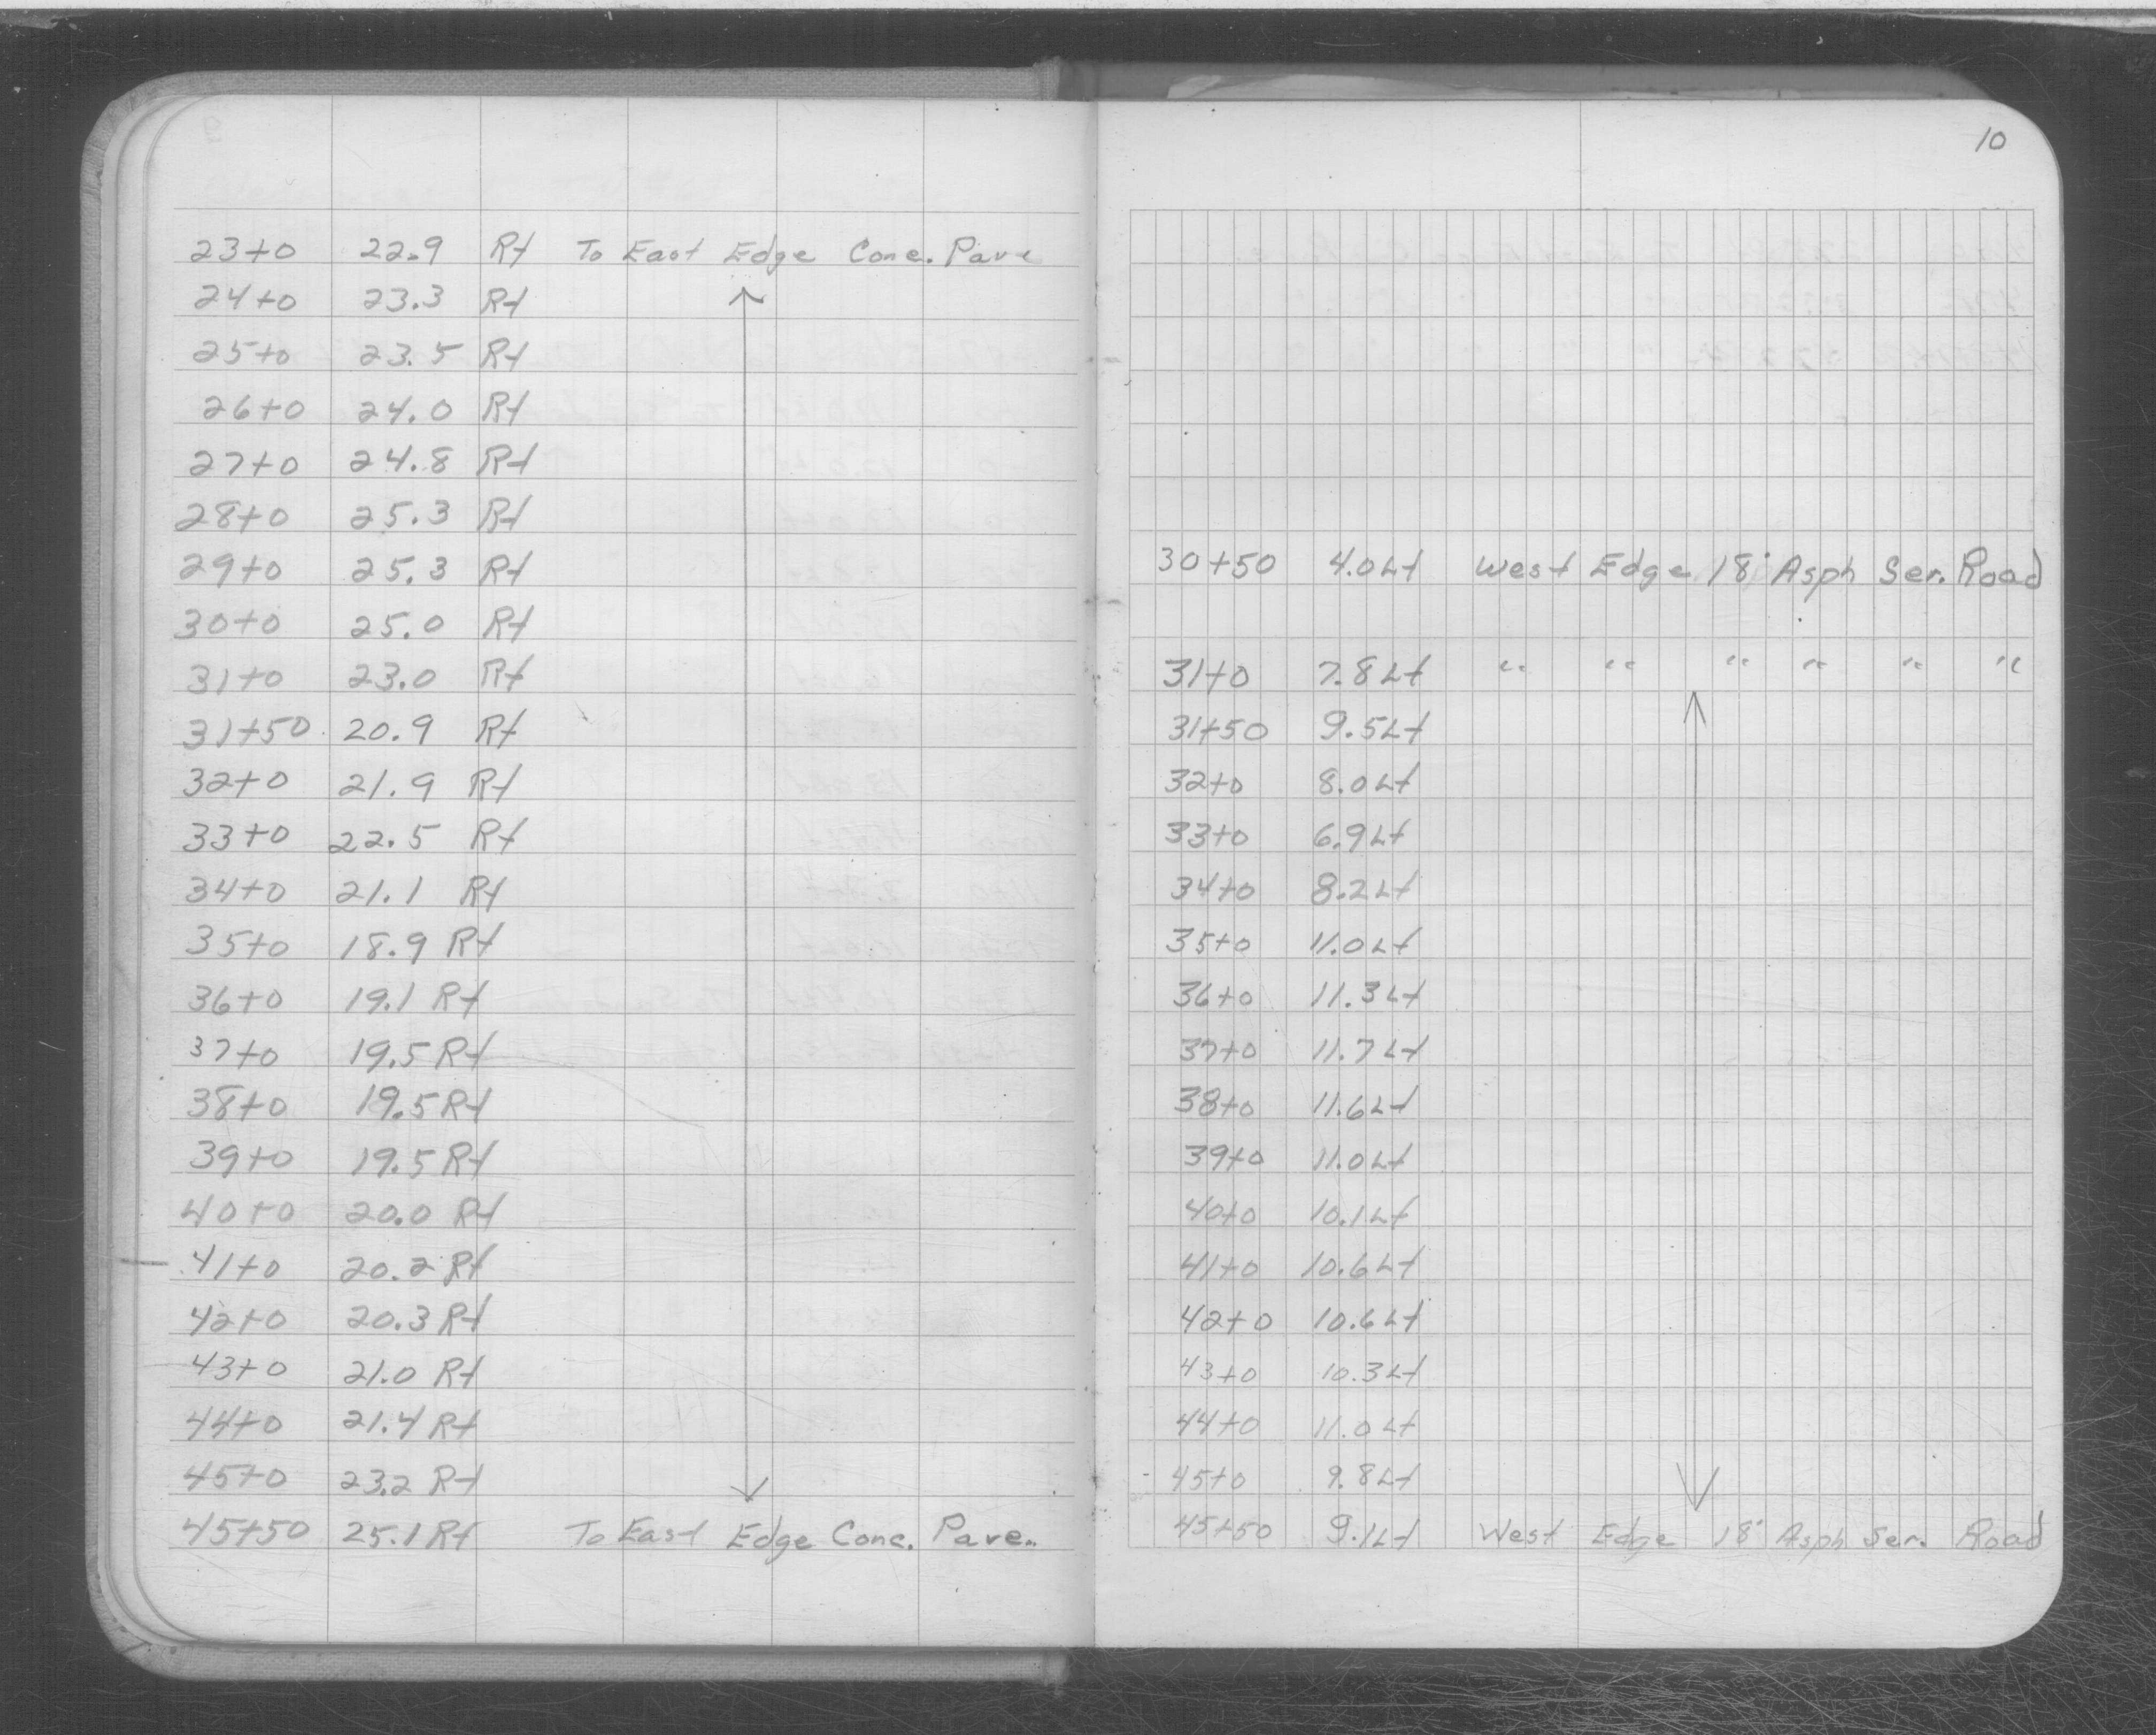 23+0 22.9 Rt To East Edge Conc. Pave
24+0 23.3 Rt
25+0 23.5 Rt
26+0 24.0 Rt
27+0 24.8 Rt
28+0 25.3 Rt
29+0 25.3 Rt
30+0 25.0 Rt
31+0 23.0 Rt
31+50 20.9 Rt
32+0 21.9 Rt
33+0 22.5 Rt
34+0 21.1 Rt
35+0 18.9 Rt
36+0 19.1 Rt
37+0 19.5 Rt
38+0 19.5 Rt
39+0 19.5 Rt
40+0 20.0 Rt
41+0 20.2 Rt
42+0 20.3 Rt
43+0 21.0 Rt
44+0 21.4 Rt
45+0 23.2 Rt
45+50 25.1 Rt To East Edge Conc. Pave.
10
30+50 4.0 Lt West Edge 18' Asph Ser. Road
31+0 7.8 Lt " " " " " "
31+50 9.5 Lt
32+0 8.0 Lt
33+0 6.9 Lt
34+0 8.2 Lt
35+0 11.0 Lt
36+0 11.3 Lt
37+0 11.7 Lt
38+0 11.6 Lt
39+0 11.0 Lt
40+0 10.1 Lt
41+0 10.6 Lt
42+0 10.6 Lt
43+0 10.3 Lt
44+0 11.0 Lt
45+0 9.8 Lt
45+50 9.1 Lt West Edge 18' Asph Ser. Road